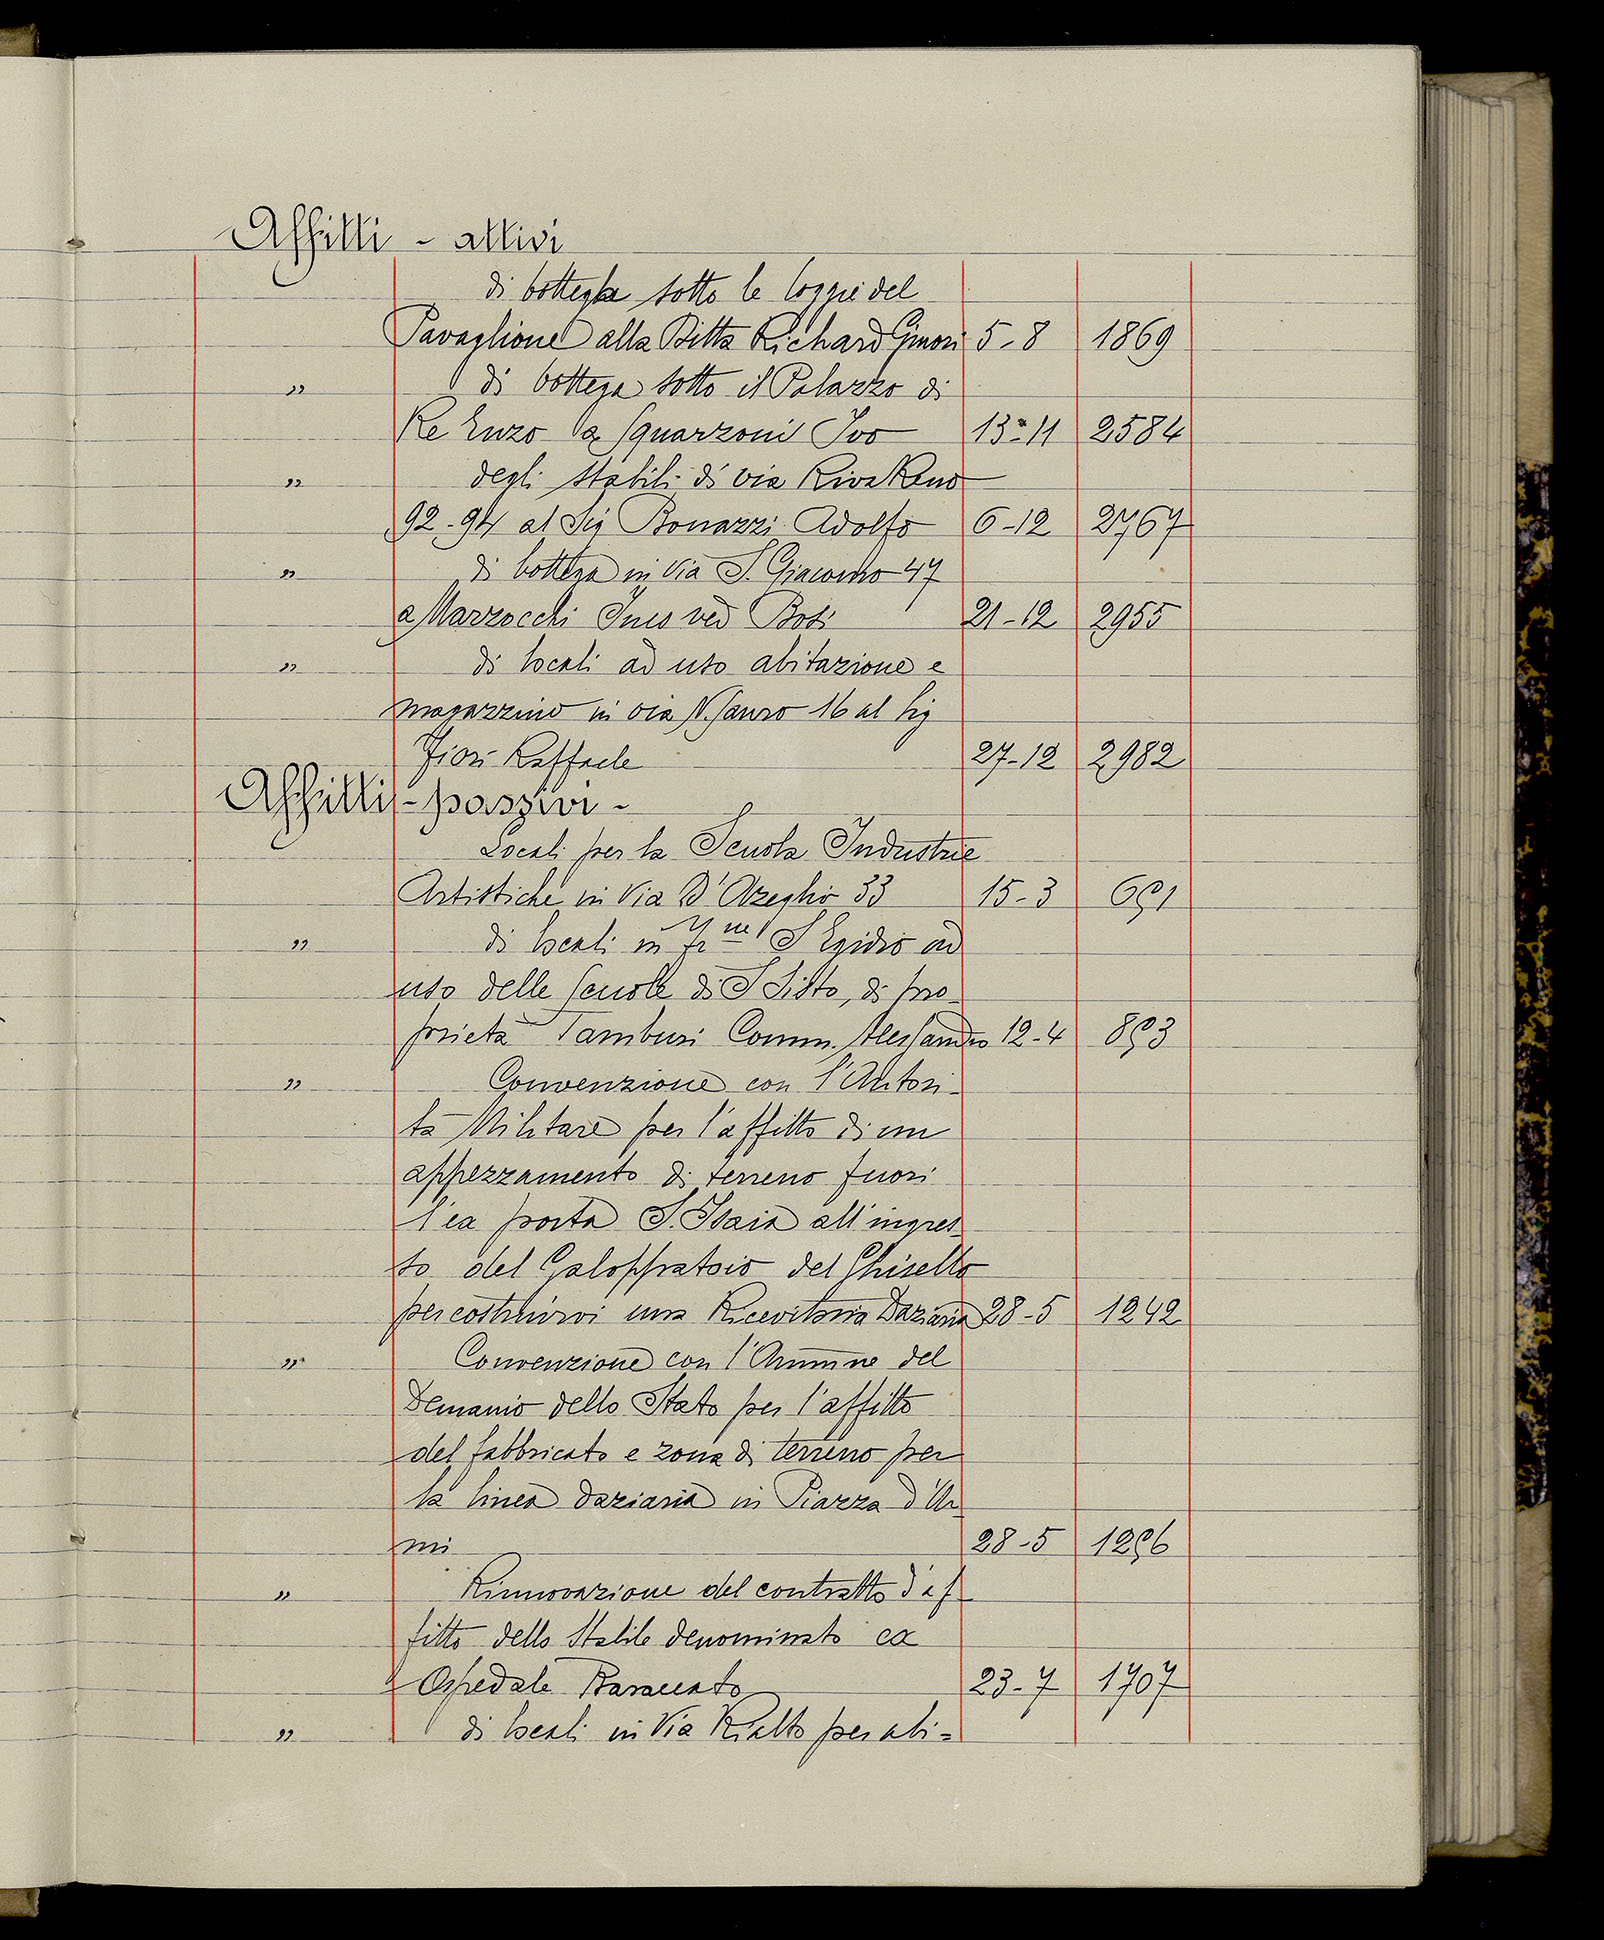 Affitti - attivi
di botteghe sotto le loggie del
Pavaglione alla Ditta Richard Ginori 5-8 1869
" di bottega sotto il Palazzo di
Re Enzo a Squarzoni Ivo 13-11 2584
" degli stabili di via Riva Reno
92-94 al Sig Bonazzi Adolfo 6-12 2767
" di bottega in Via S. Giacomo 47
a Marzocchi Ines ved Bosi 21-12 2955
" di locali ad uso abitazione e
magazzino in via N. Sauro 16 al Sig
Fiori Raffaele 27-12 2982
Affitti - passivi -
Locali per la Scuola Industrie
Artistiche in Via D'Azeglio 33 15-3 691
" di locali in S Egidio ad
uso delle Scuole di S Sisto, di pro-
prietà Tamburi Comm. Alessandro 12-4 893
" Convenzione con l'Autori-
tà Militare per l'affitto di un
appezzamento di terreno fuori
l'ex porta S. Isaia all'ingres-
so del Galoppatoio del Ghisello
per costruirvi una Ricevitoria Daziaria 28-5 1242
" Convenzione con l'Ammne del
Demanio dello Stato per l'affitto
del fabbricato e zona di terreno per
la linea daziaria in Piazza d'Ar-
mi 28-5 1296
" Rinnovazione del contratto d'af-
fitto dello Stabile denominato ex
Ospedale Baraccato 23-7 1707
" di locali in Via Rialto per abi=